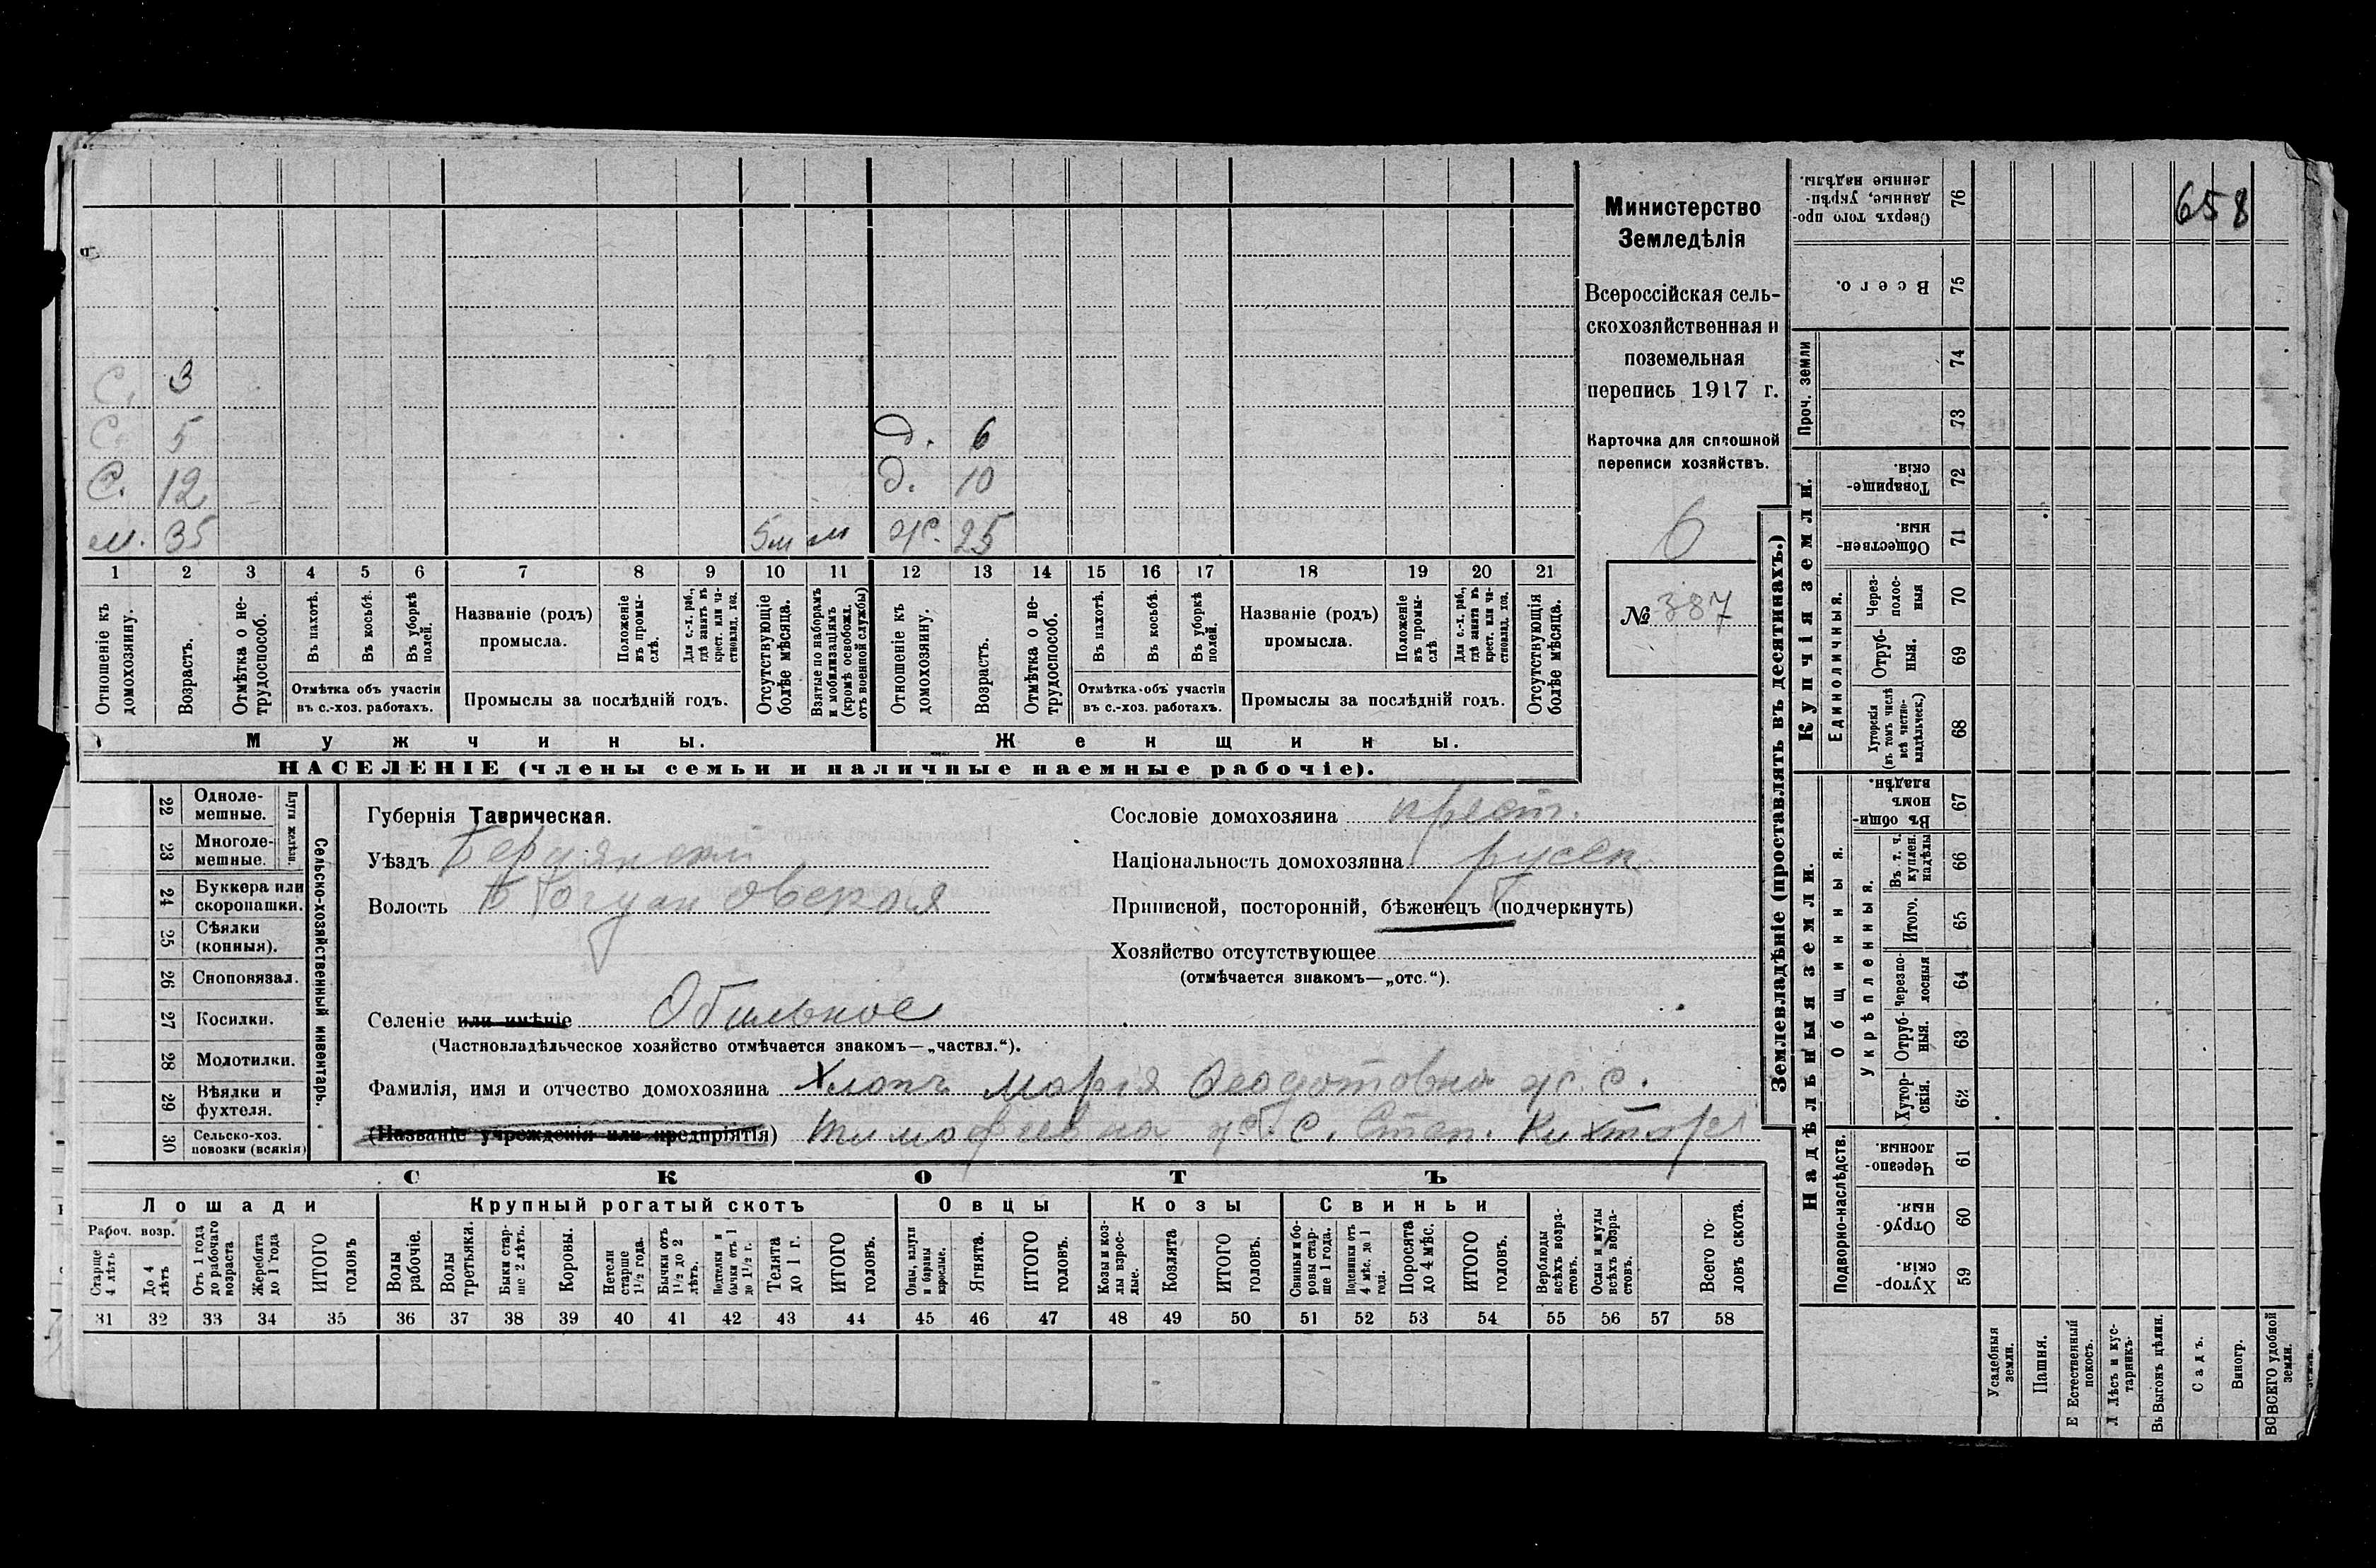 658
Министерство
Земледѣлія
Всероссійская сель-
скохозяйственная и
поземельная
перепись 1917 г.
Карточка для сплошной
переписи хозяйствъ.
6
№ 387
С. 3
С. 5 д. 6
С. 12 д. 10
м. 35 5м м ж. 25
1 2 3 4 5 6 7 8 9 10 11 12 13 14 15 16 17 18 19 20 21
Отношеніе къ домохозяину.
Возрастъ.
Отмѣтка о не-трудоспособ.
Въ пахотѣ.
Въ косьбѣ.
Въ уборкѣ полей.
Отмѣтка объ участіи
въ с.-хоз. работахъ.
Названіе (родъ)
промысла.
Положеніе въ промы-слѣ.
Для с.-х. раб., гдѣ занятъ въ крест. или ча-стновлад. хоз.
Промыслы за послѣдній годъ.
Отсутствующіе болѣе мѣсяца.
Взятые по наборамъ и мобилизаціямъ (кромѣ освобожд. отъ военной службы)
Отношеніе къ домохозяину.
Возрастъ.
Отмѣтка о не-трудоспособ.
Въ пахотѣ.
Въ косьбѣ.
Въ уборкѣ полей.
Отмѣтка объ участіи
въ с.-хоз. работахъ.
Названіе (родъ)
промысла.
Положеніе въ промы-слѣ
Для с.-х. раб., гдѣ занята въ крест. или ча-стновлад. хоз.
Промыслы за послѣдній годъ.
Отсутствующія болѣе мѣсяца.
Мужчины.
Женщины.
НАСЕЛЕНІЕ (члены семьи и наличные наемные рабочіе).
Сельско-хозяйственный инвентарь.
Плуги желѣзн.
22 Одноле-мешные.
23 Многоле-мешные.
24 Буккера или скоропашки.
25 Сѣялки (конныя).
26 Сноповязал.
27 Косилки.
28 Молотилки.
29 Вѣялки и фухтеля.
30 Сельско-хоз. повозки (всякія)
Губернія Таврическая.
Уѣздъ Бердянскій
Волость Богдановская
Сословіе домохозяина крест.
Національность домохозяина русск.
Приписной, посторонній, бѣженецъ (подчеркнуть)
Хозяйство отсутствующее
(отмѣчается знакомъ—„отс.“).
Селеніе или имѣніе Обильное
(Частновладѣльческое хозяйство отмѣчается знакомъ—„частвл.“).
Фамилія, имя и отчество домохозяина Хлопъ Марія Ѳеодотовна ж. с.
(Названіе учрежденія или предпріятія) Тимофеевна ж. с. Степ. Кихтяръ
СКОТЪ
Лошади
Крупный рогатый скотъ
Овцы
Козы
Свиньи
Рабоч. возр.
Старше 4 лѣтъ
До 4 лѣтъ
Отъ 1 года до рабочаго возраста
Жеребята до 1 года
ИТОГО головъ
Волы рабочіе.
Волы третьяки.
Быки стар-ше 2 лѣтъ.
Коровы.
Нетели старше 1 1/2 года.
Бычки отъ 1 1/2 до 2 лѣтъ.
Подтелки и бычки отъ 1 до 1 1/2 г.
Телята до 1 г.
ИТОГО головъ.
Овцы, валухи и бараны взрослые.
Ягнята.
ИТОГО головъ.
Козы и коз-лы взрос-лые.
Козлята
ИТОГО головъ.
Свиньи и бо-ровы стар-ше 1 года.
Подсвинки отъ 4 мѣс. до 1 года.
Поросята до 4 мѣс.
ИТОГО головъ.
Верблюды всѣхъ возра-стовъ.
Ослы и мулы всѣхъ возра-стовъ.
Всего го-ловъ скота.
31 32 33 34 35 36 37 38 39 40 41 42 43 44 45 46 47 48 49 50 51 52 53 54 55 56 57 58
Землевладѣніе (проставлять въ десятинахъ.)
Купчія земли.
Надѣльныя земли.
Сверхъ того про-данные, укрѣп-ленные надѣлы. 76
Всего. 75
Проч. земли
74
73
Товарище-скія. 72
Обществен-ныя. 71
Единоличныя.
Через-полос-ныя 70
Отруб-ныя. 69
Хуторскія (въ томъ числѣ всѣ частно-владѣльческ.) 68
Общинныя.
Въ общин-номъ владѣн. 67
Укрѣпленныя.
Въ т. ч. куплен. надѣлы 66
Итого. 65
Черезпо-лосныя 64
Отруб-ныя. 63
Хутор-скія. 62
Подворно-наслѣдств.
Черезпо-лосныя 61
Отруб-ныя. 60
Хутор-скія. 59
Усадебныя земли.
Пашня.
Естественный покосъ.
Лѣсъ и кус-тарникъ.
Выгонъ цѣлин.
Садъ.
Виногр.
ВСЕГО удобной земли.